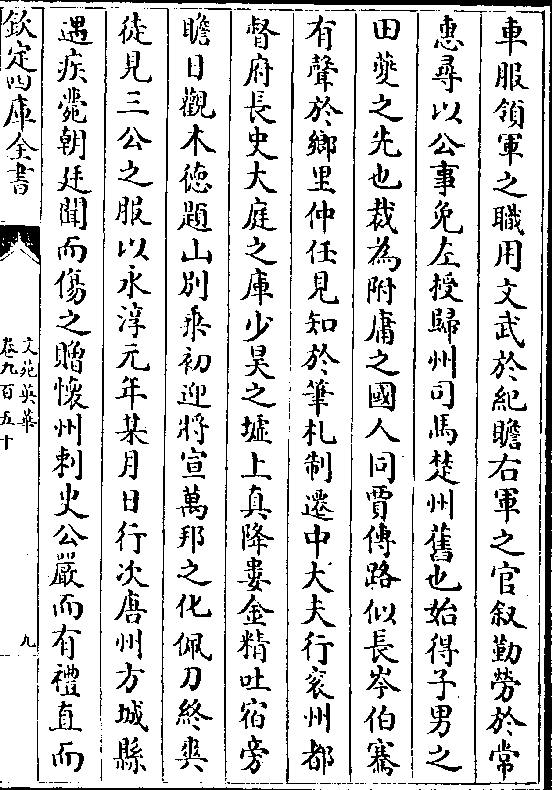 車服領軍之職用文武於紀瞻右軍之官叙勤勞於常
惠尋以公事免左授歸州司馬楚州舊也始得子男之
田夔之先也裁為附庸之國人同賈傅路似長岑伯騫
有聲於鄉里仲任見知於筆札制遷中大夫行兖州都
督府長史大庭之庫少昊之墟上真降婁金精吐宿旁
瞻日觀木徳題山别乘初迎將宣萬邦之化佩刀終爽
徒見三公之服以永淳元年某月日行次唐州方城縣
遇疾薨朝廷聞而傷之贈懷州刺史公嚴而有禮直而
欽定四庫全書
文苑英華
卷九百五十
九